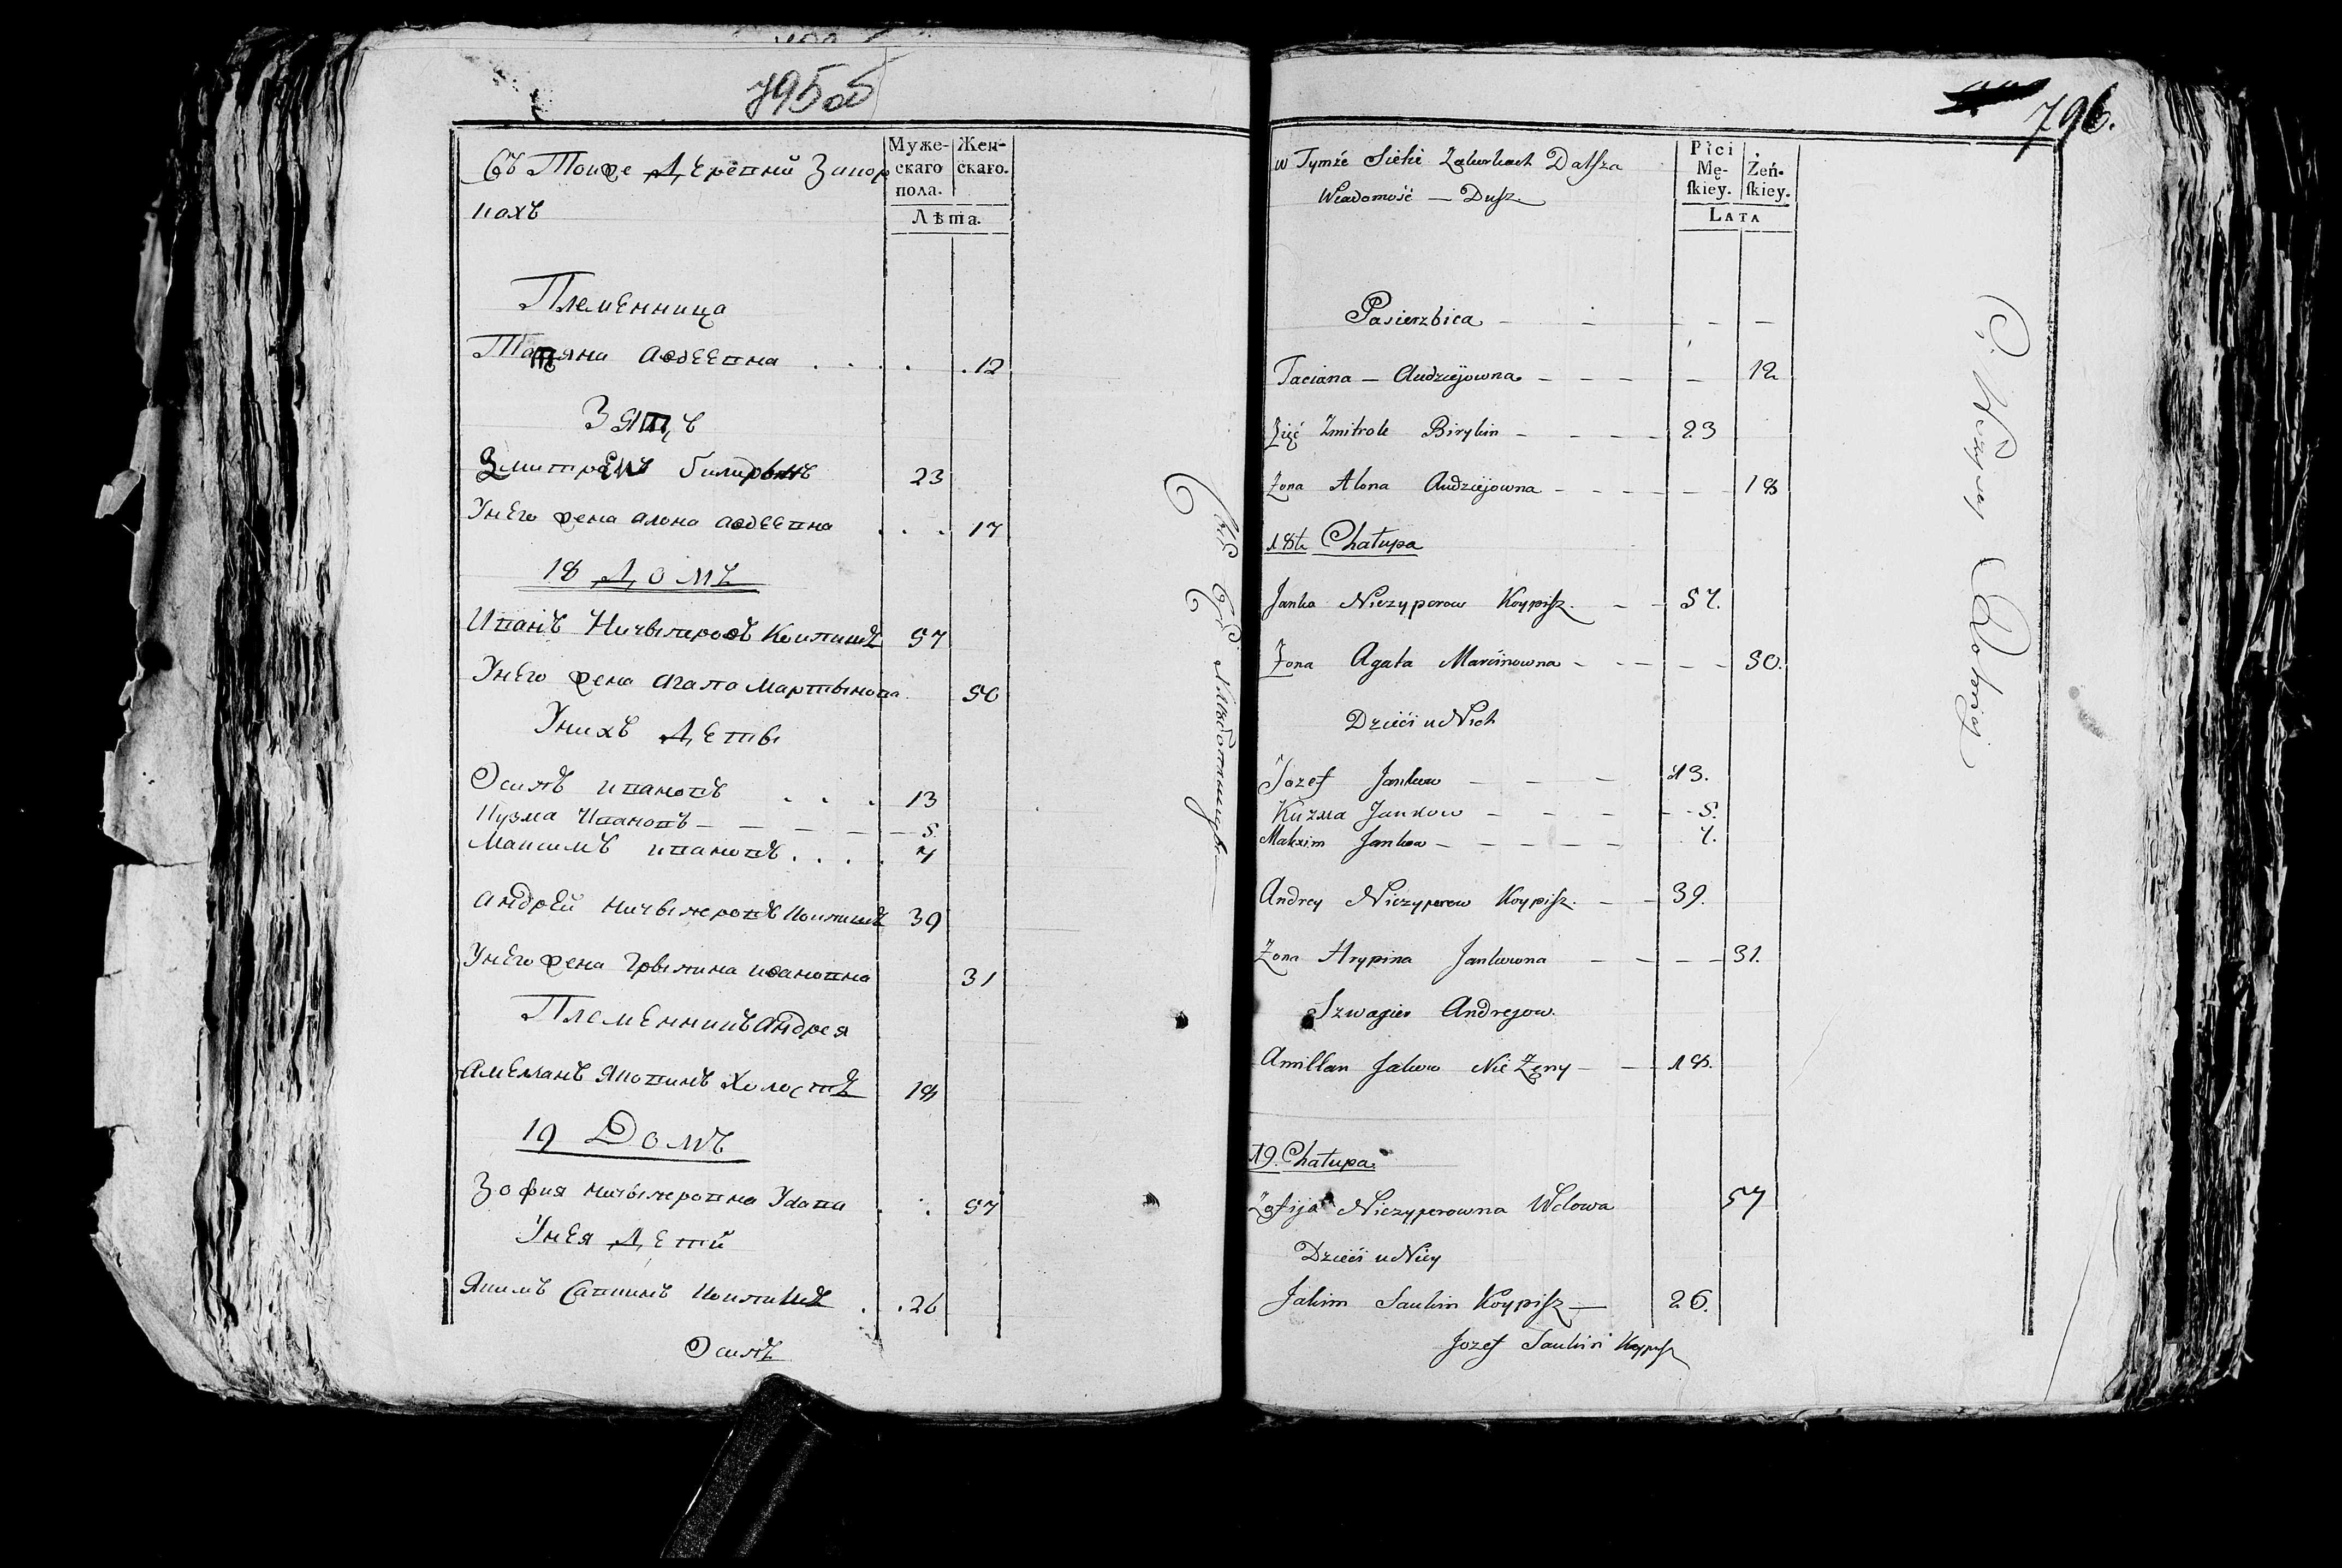 795 об
Муже-
скаго
пола.
Жен-
скаго.
Лѣта.
Въ Тойже Деревни Запор
кахъ
Племенница
Татяна Авдеевна . . . . 12
Зять
Змитрокъ 23
Унего жена Алона Авдеевна . . . 17
18 Домъ
Иванъ Ничыперовъ Коипишъ 57
Унего жена Агапа Мартынова 50
Унихъ Дети
Осипъ Ивановъ . . . 13
Кузма Ивановъ — — — — 5.
Максимъ Ивановъ . . . . 7
Андрей Ничыперовъ Коипишъ 39
Унего жена Грыпина Ивановна 31
Племенникъ Андрея
Амельянъ Яковинъ Холоствъ 18
19 Домъ
Зофия Ничыперовна Удова . . 57
Унея Детй
Якимъ Савкинъ Коипишъ . . 26
Осипъ
796.
w Tymże Siele Zaborkach Dalsza
Wiadomość — Dusz
Płci
Mę-
skiey.
Żeń-
skiey.
LATA
Pasierzbica — — — — —
Taciana — Audziejowna — — — — 12
Zięć Zmitrok Birykin — — — — 23
Żona Alona Audziejowna — — — — — 18
18ta Chałupa
Janka Niczyporow Koypisz. — — 57.
Żona Agata Marcinowna — — — — — 50.
Dzieći u Nich
Jozef Jankow — — — 13.
Kuzma Jankow — — — — — 5.
Maksim Jankow — — — — — 7.
Andrey Niczyporow Koypisz. — — 39.
Żona Hrypina Jankowna — — — — 31.
Szwagier Andrejow.
Amillan Jakow Nie Żęny — — 18.
19. Chałupa
Zofija Niczyperowna Wdowa 57
Dzieći u Niey
Jakim Saukin Koypisz — 26.
Jozef Saukin Koypisz